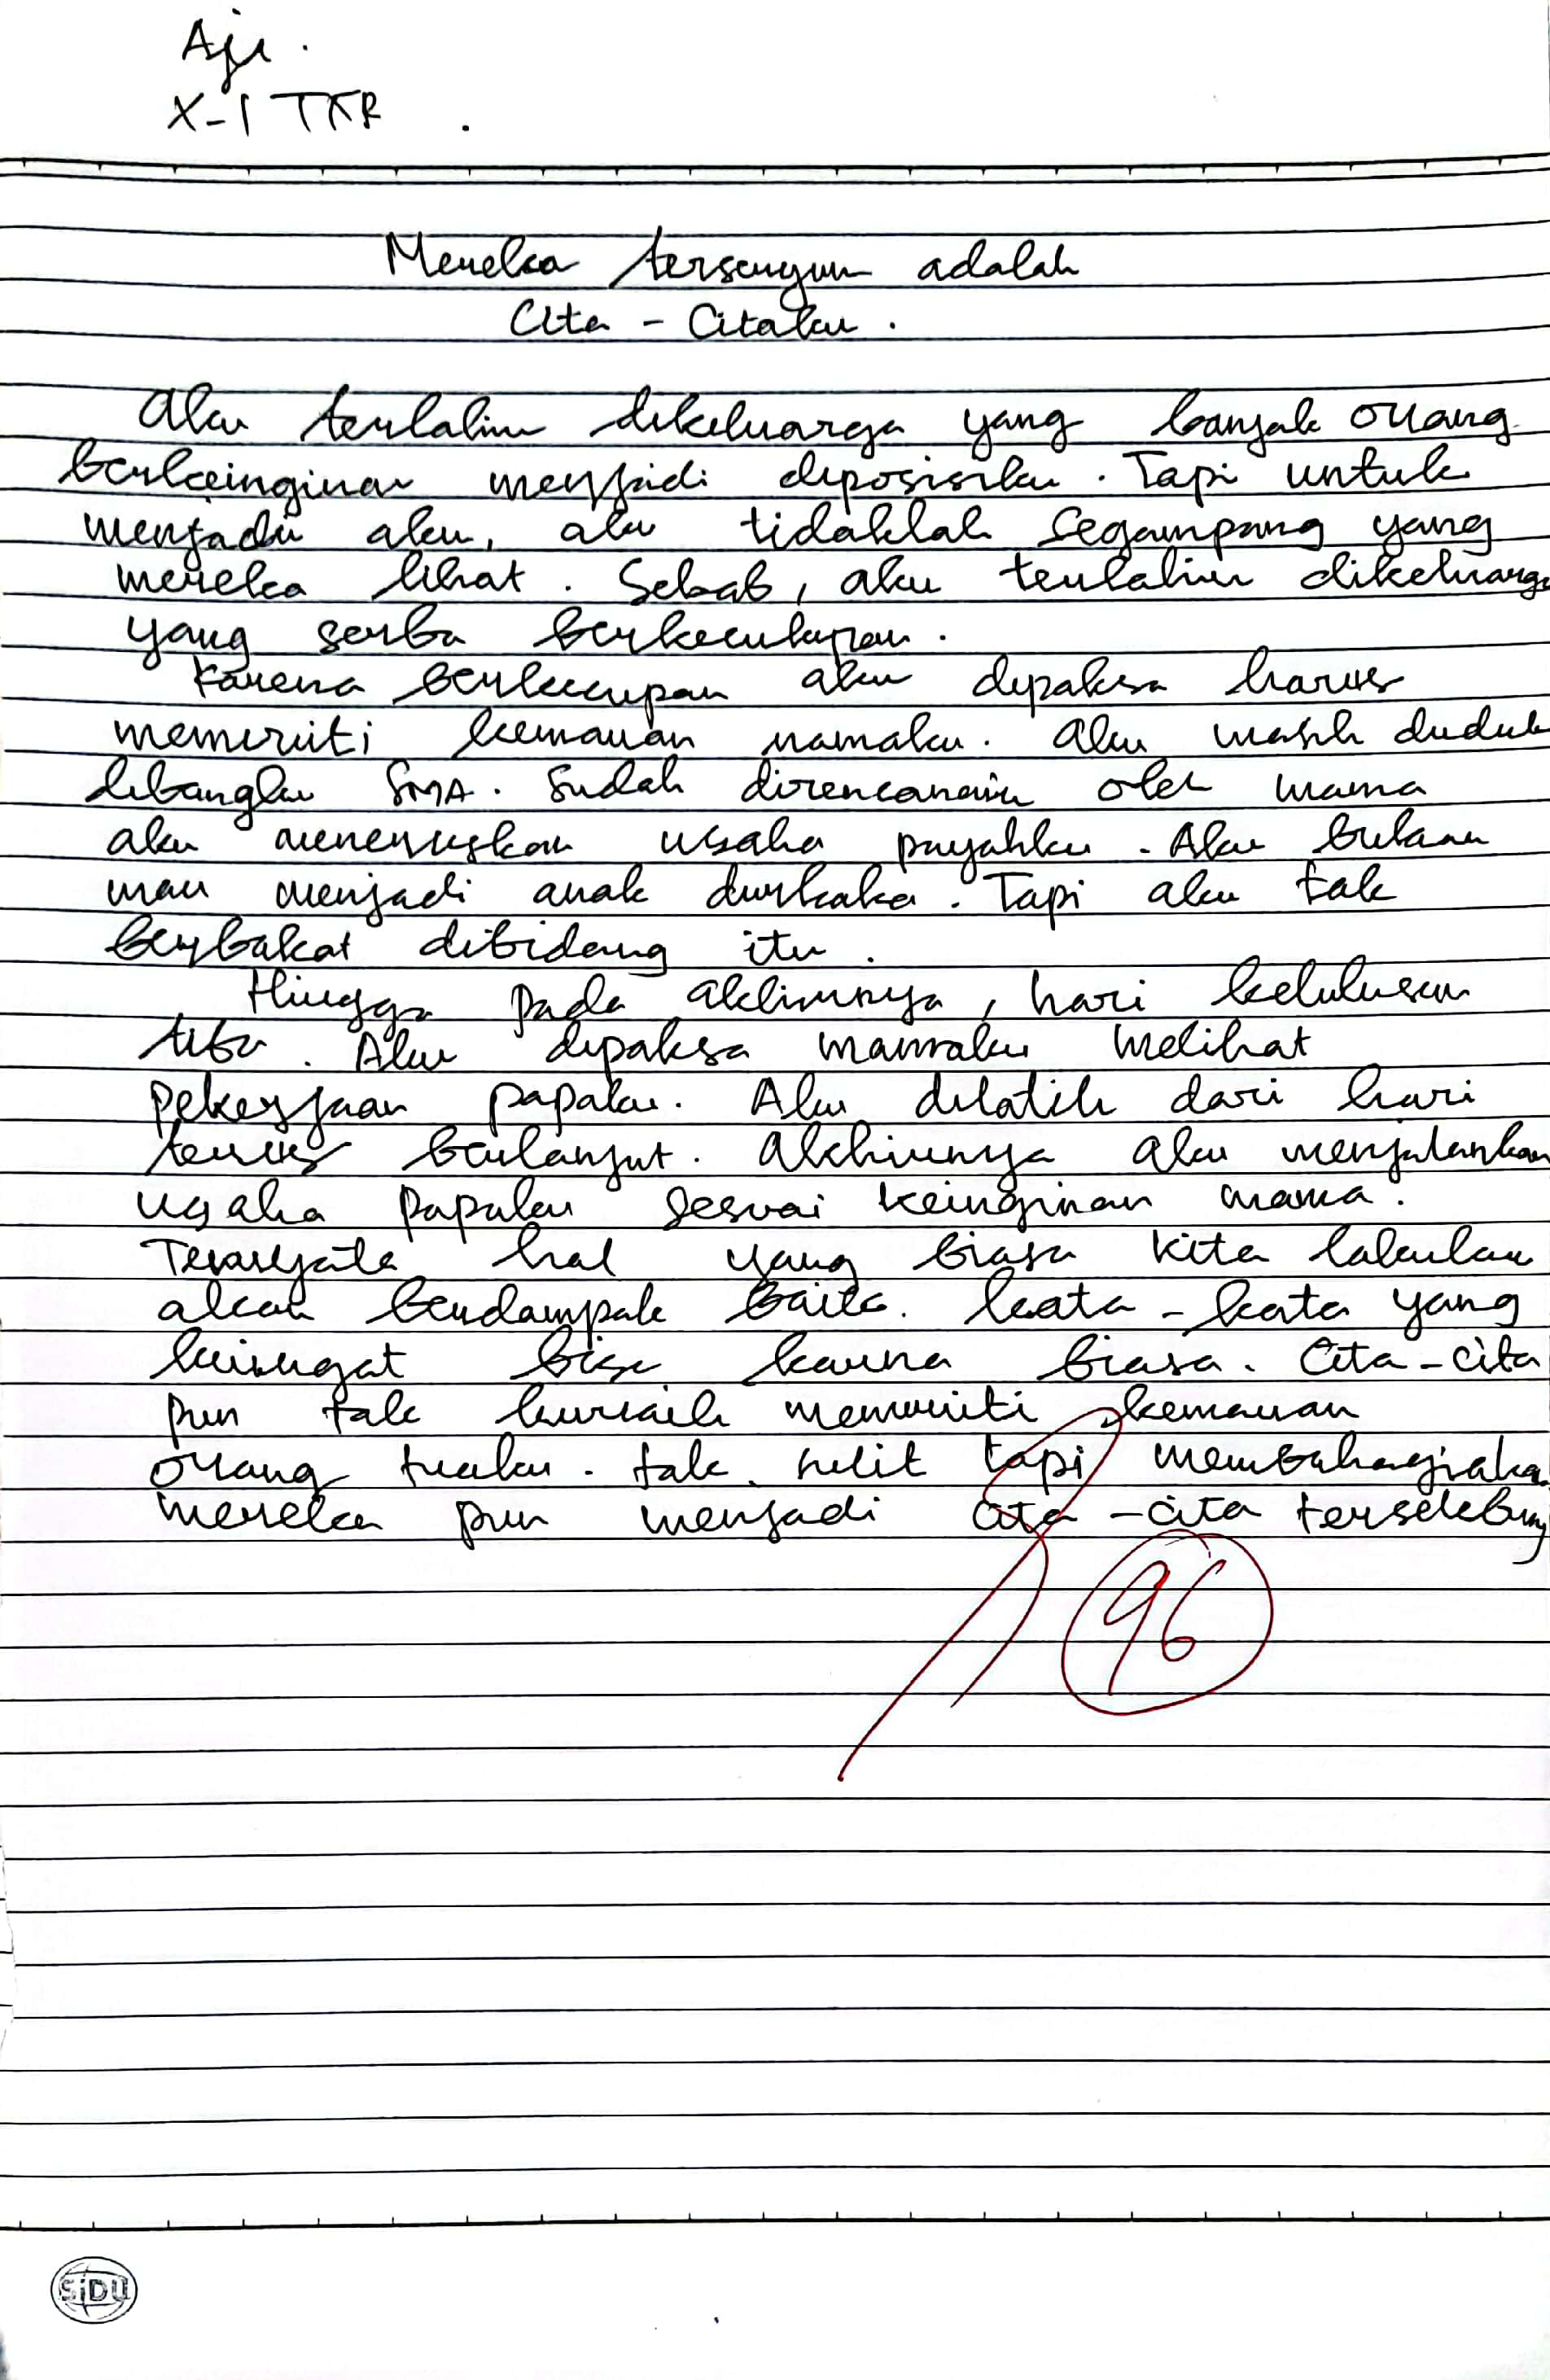 Aji.
X-1 TKR
Mereka tersenyum adalah
Cita - Citaku.
Aku terlahir dikeluarga yang banyak orang
berkeinginan menjadi diposisiku. Tapi untuk
menjadi aku, aku tidaklah segampang yang
mereka lihat. Sebab, aku terlahir dikeluarga
yang serba berkecukupan.
Karena berkecupan aku dipaksa harus
memeruiti kemauan mamaku. Aku masih duduk
dibangku SMA. Sudah direncanain oleh mama
aku meneruskan usaha payahku. Aku bukan
mau menjadi anak durhaka. Tapi aku tak
berbakat dibidang itu.
Hingga pada akhirnya, hari kelulusan
tiba. Aku dipaksa mamaku melihat
pekerjaan papaku. Aku dilatih dari hari
terus berlanjut. Akhirnya aku menjalankan
usaha papaku sesuai keinginan mama.
Ternyata hal yang biasa kita lakukan
akan berdampak baik. kata-kata yang
kuingat bisa karna biasa. Cita-cita
pun tak kuraih menuruiti kemauan
orang tuaku. tak sulit tapi membahagiaka
mereka pun menjadi cita-cita terselubung
96
SiDU